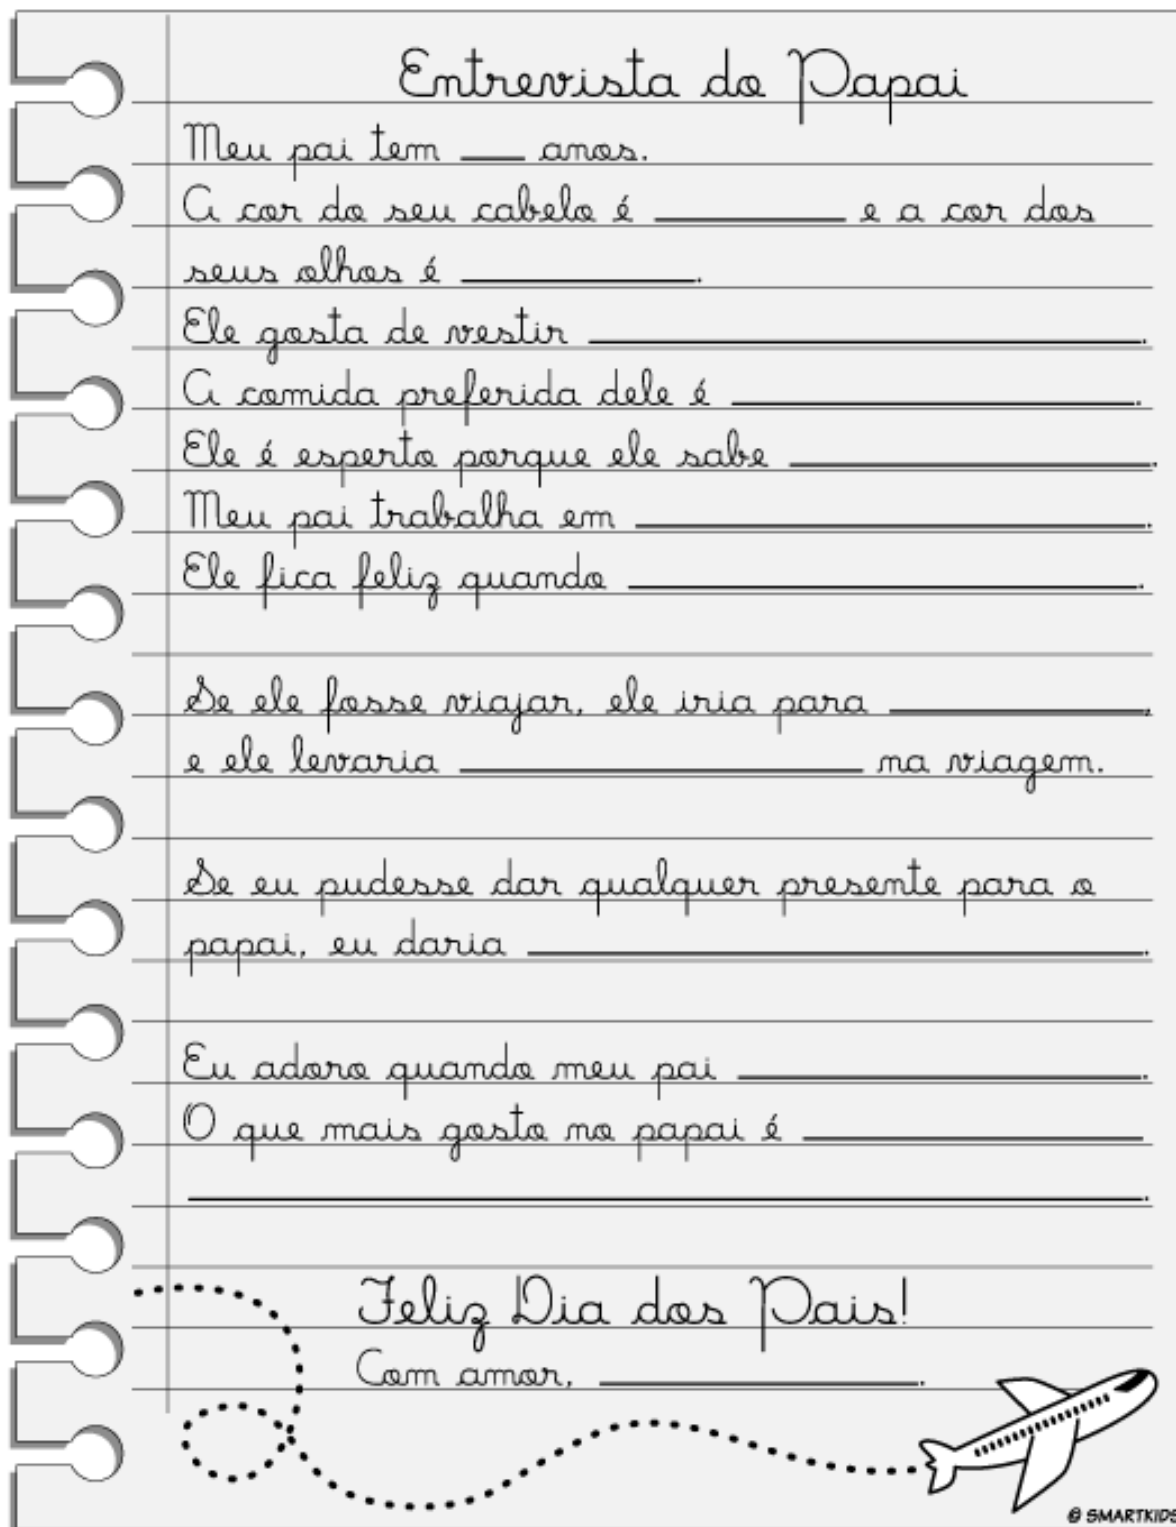 Entrevista do Papai
Meu pai tem ___ anos.
A cor do seu cabelo é _________ e a cor dos
seus olhos é ___________.
Ele gosta de vestir __________________________.
A comida preferida dele é ___________________.
Ele é esperto porque ele sabe _________________.
Meu pai trabalha em ________________________.
Ele fica feliz quando ________________________.
Se ele fosse viajar, ele iria para ____________,
e ele levaria ___________________ na viagem.
Se eu pudesse dar qualquer presente para o
papai, eu daria _____________________________.
Eu adoro quando meu pai ___________________.
O que mais gosto no papai é ________________
_____________________________________________.
Feliz Dia dos Pais!
Com amor, _______________.
© SMARTKIDS